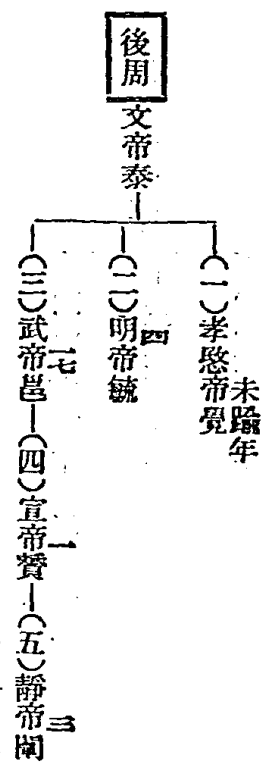 後周
文帝泰
(一)孝愍帝覺
未踰年
(二)明帝毓
四
(三)武帝邕
一七
(四)宣帝贇
一
(五)靜帝闡
三